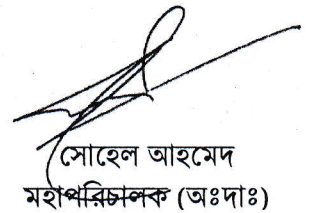 সোহেল আহমেদ
মহাপরিচালক (অঃদাঃ)